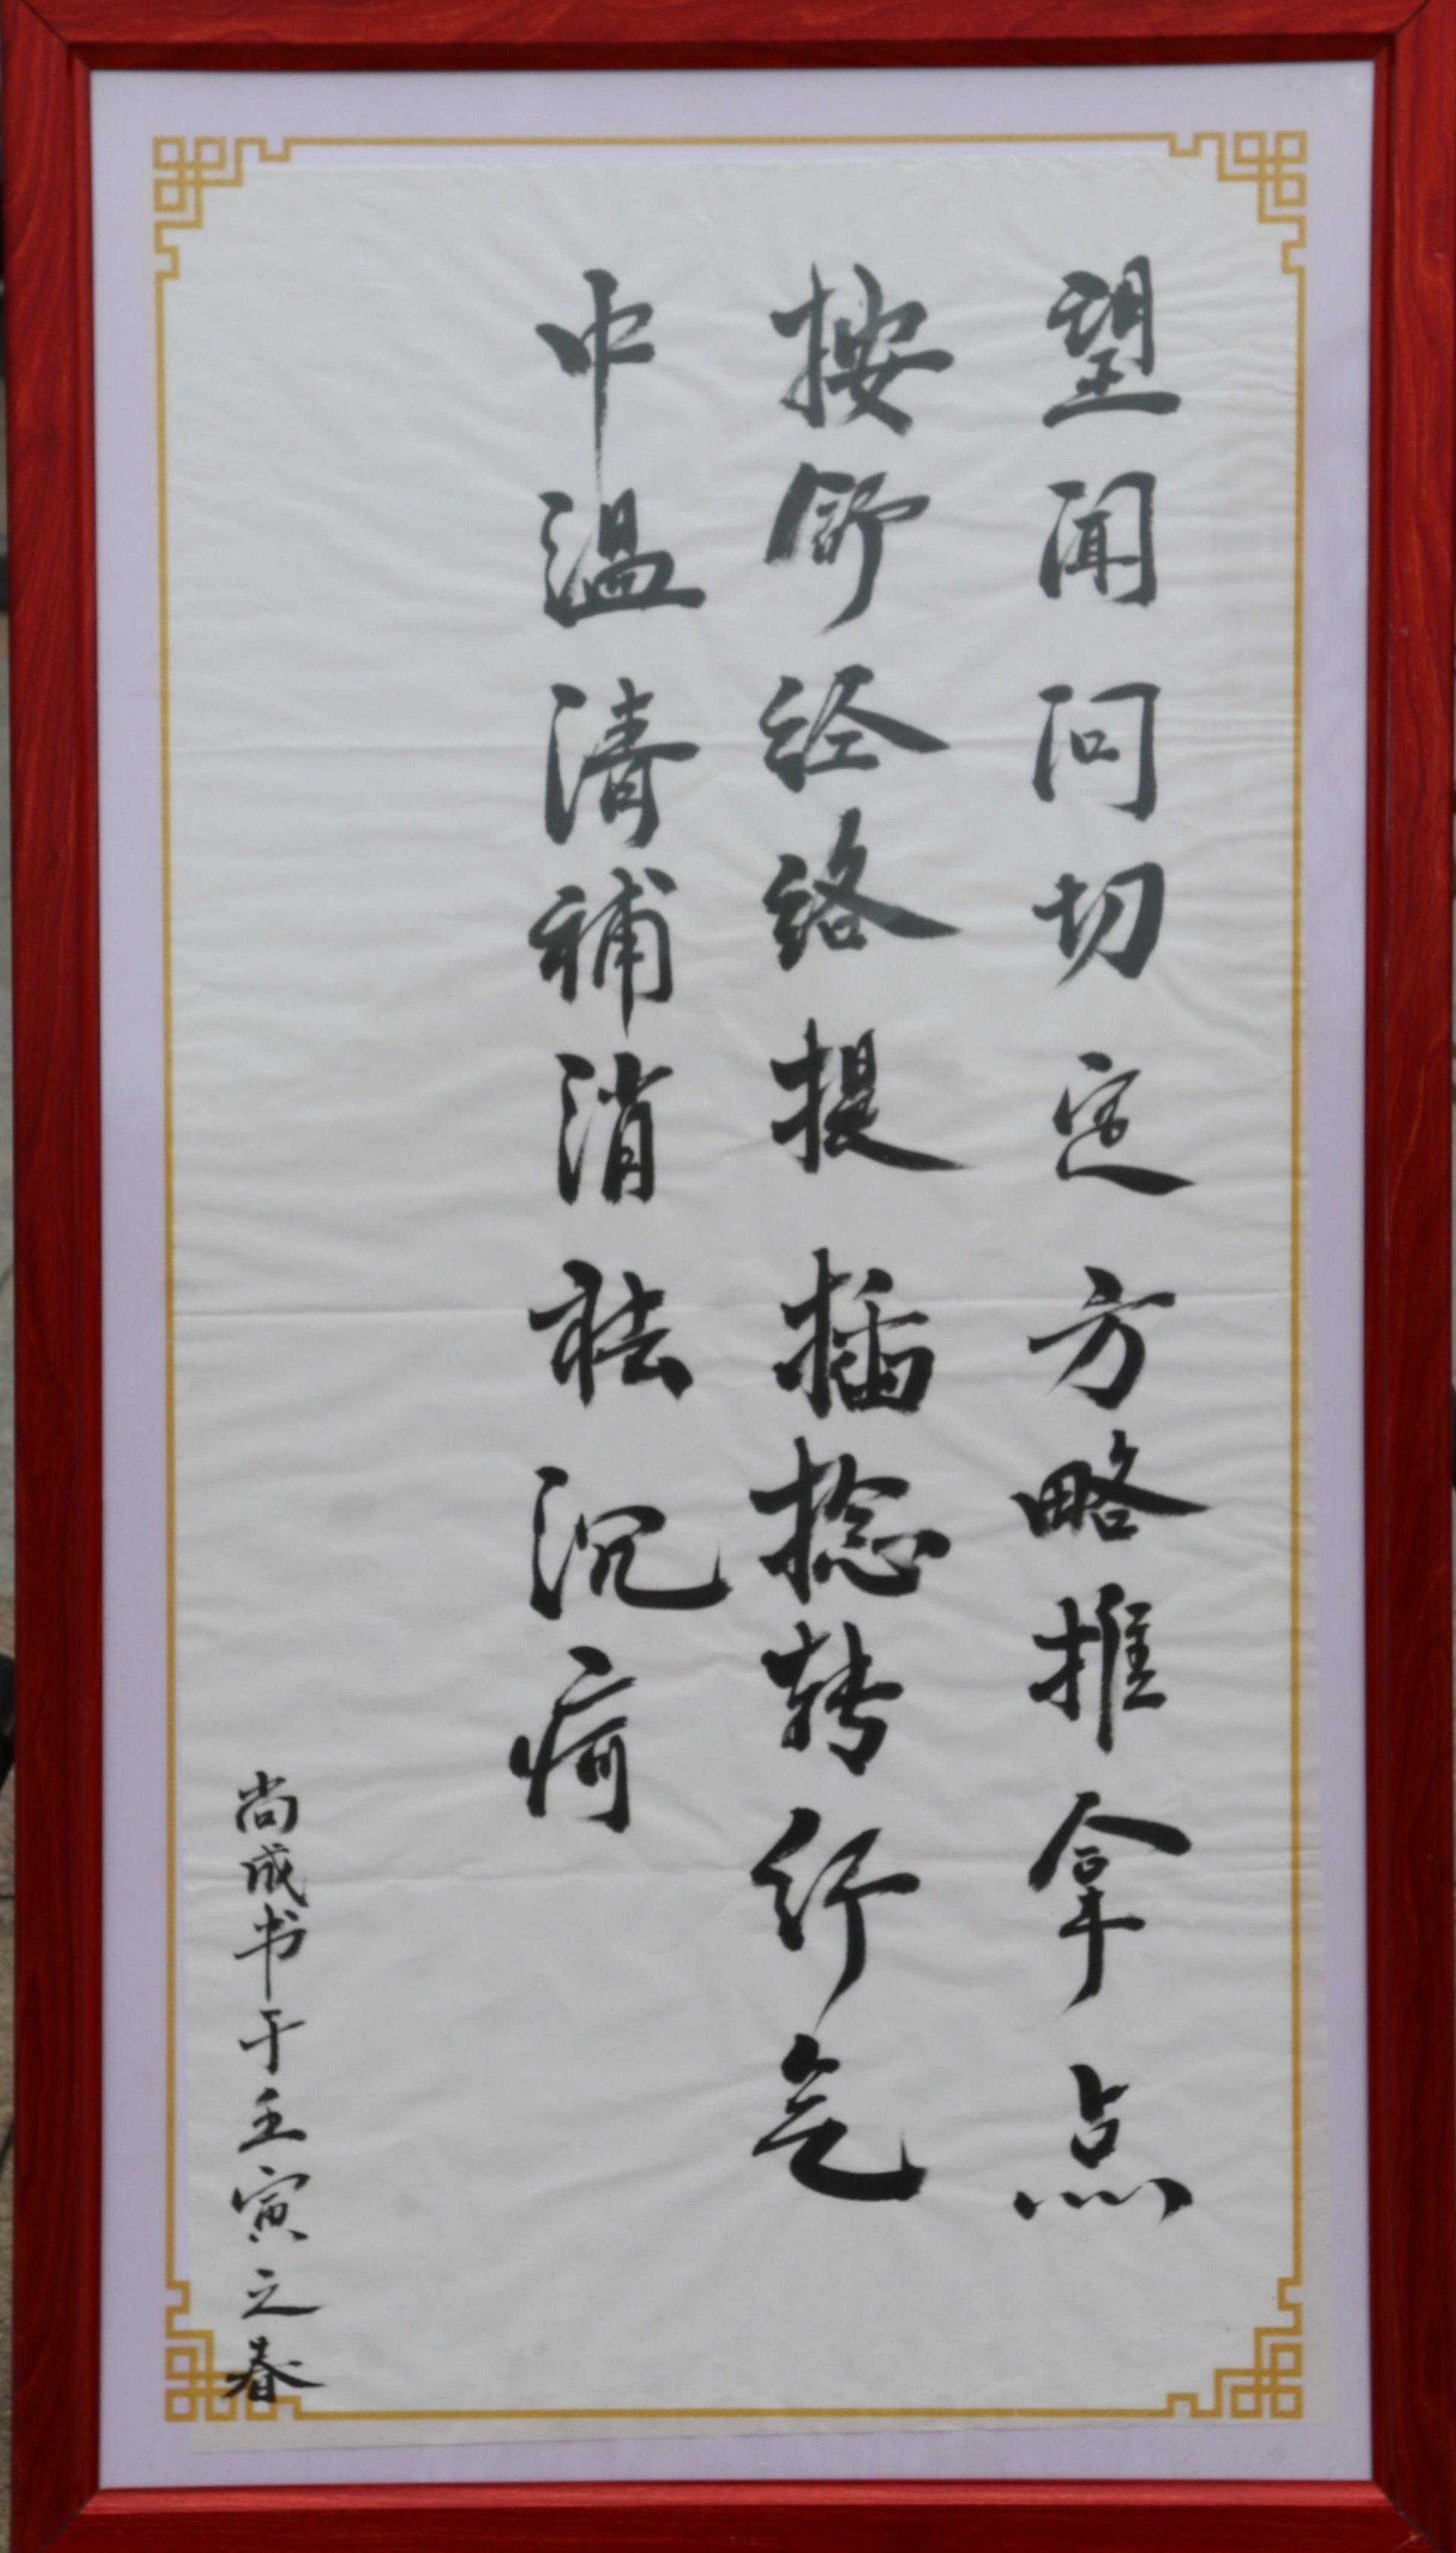 望闻问切定方略推拿点
按舒经络提插捻转行气
中温清补消祛沉疴
尚成书于壬寅之春